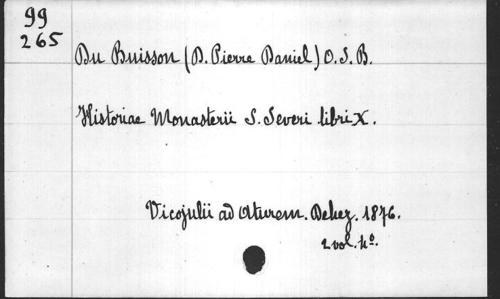 99
265
Du Buisson (D. Pierre Daniel) O.S.B.
Historiae Monasterii S. Severi libri X.
Vicojulii ad Aturem. Dehez. 1876.
2 vol. 4º.